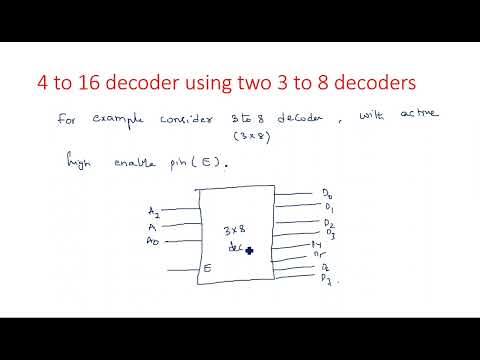 4 to 16 decoder using two 3 to 8 decoders
For example consider 3 to 8 decoder, with active
(3x8)
high enable pin (E).
D0
D1
A2
D2
A1
3x8
D3
A0
dec
D4
D5
E
D6
D7.